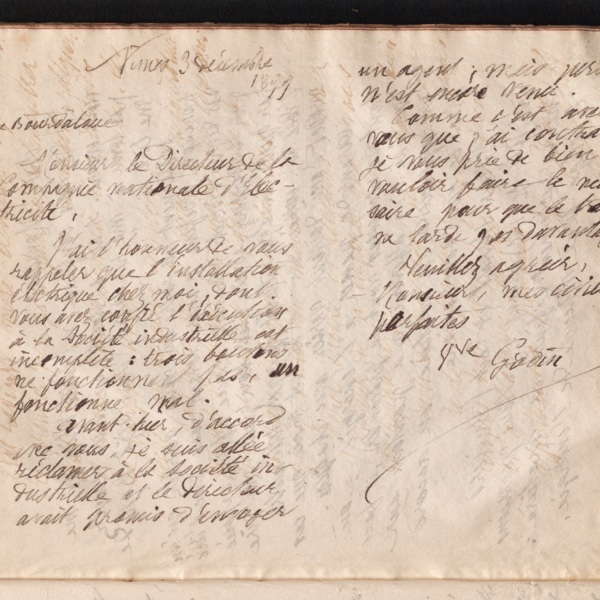 Nimes 3 décembre
1899
e Bourdaloue
Monsieur le Directeur de la
Compagnie nationale d'Elec-
tricité,
J'ai l'honneur de vous
rappeler que l'installation
électrique chez moi, dont
vous avez confié l'exécution
à la Société industrielle est
incomplète : trois boutons
ne fonctionnent pas, un
fonctionne mal.
Avant-hier, d'accord
avec vous, je suis allée
réclamer à la Société in-
dustrielle et le directeur
avait promis d'envoyer
un agent ; mais per
n'est encore venu.
Comme c'est avec
vous que j'ai contra
je vous prie de bien
vouloir faire le né
saire pour que le
ne tarde pas davanta
Veuillez agréer,
Monsieur, mes civil
parfaites
Vve Godin